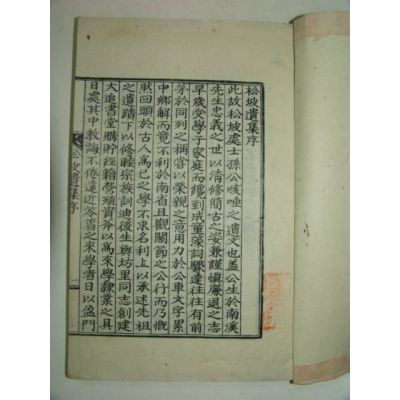 松坡遺集序
此故松坡處士孫公
唾之遺文也蓋公生於南溪
先生忠義之世以清修簡古之姿兼謹愼廉退之志
早歲受學于家庭而纔到成童藻詞驟達往往有前
茅於同列之稱嘗以榮親之意用力於公車文字累
中鄕解而竟不利於南省且觀關節之公行而乃慨
然回頭於古人爲己之學不求名利上以承述先祖
之遺躅下以修睦宗族訓迪後生與坊里同志創建
大追書堂購貯經籍營殖資斧以爲來學隷業之具
日處其中教誨不倦遠近
之來學者日以盈門
松坡遺集序
一